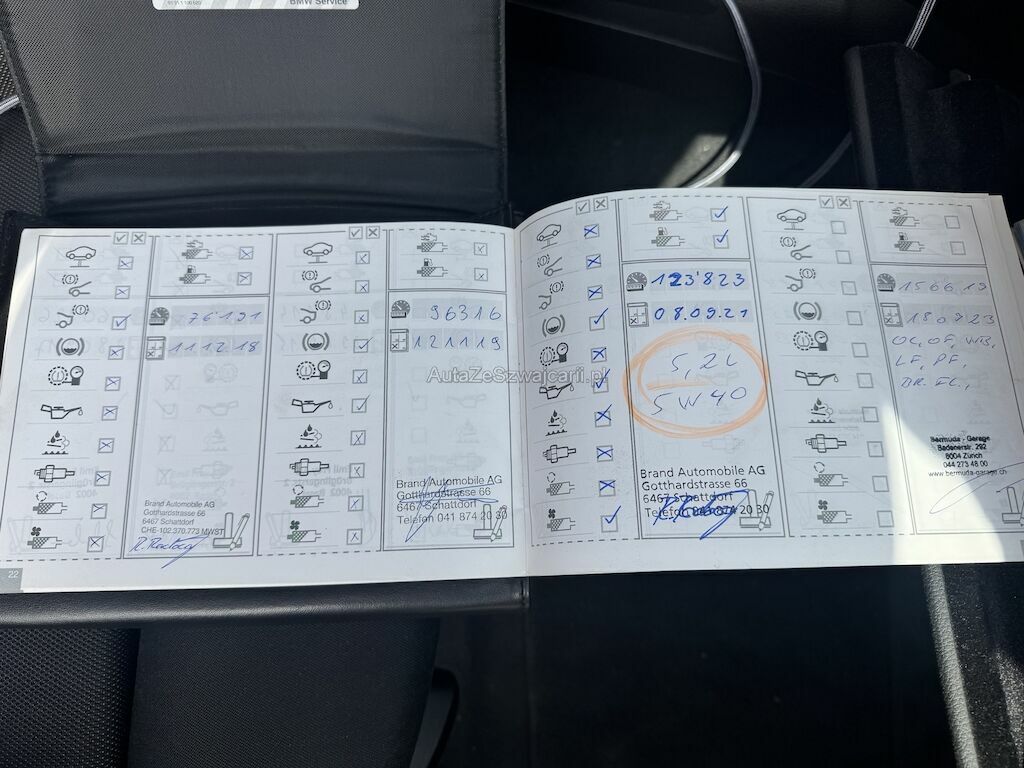 BMW Service
76191
11 12 18
Brand Automobile AG
Gotthardstrasse 66
6467 Schattdorf
CHE-102.370.773 MWST
22
96316
12 11 19
Brand Automobile AG
Gotthardstrasse 66
6467 Schattdorf
Telefon 041 874 20 30
AutaZeSzwajcarii.pl
123'823
08.09.21
5,2L
5W40
Brand Automobile AG
Gotthardstrasse 66
6467 Schattdorf
Telefon 041 874 20 30
18 08 23
OC, OF, WB,
LF, PF,
BR. FL.,
Bermuda - Garage
Badenerstr. 292
8004 Zürich
044 273 48 00
www.bermuda-garage.ch